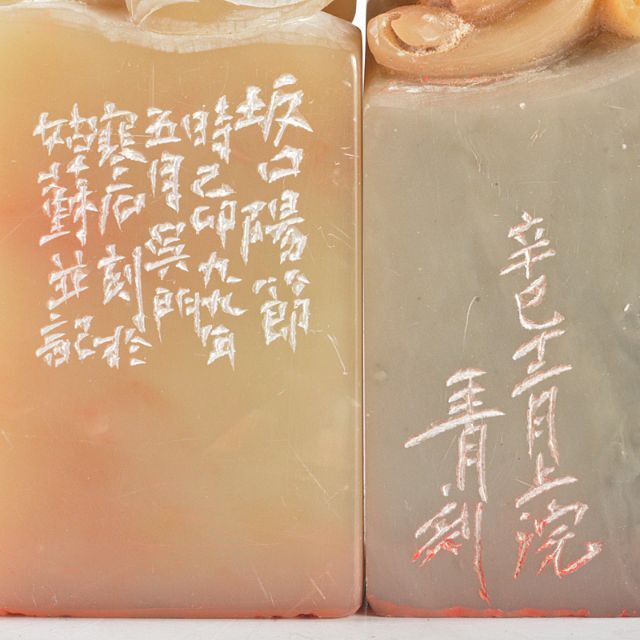 坂口陽節
時己卯九九年
五月吳門
寒石刻於
姑蘇並記
辛巳十二月上浣
青刻